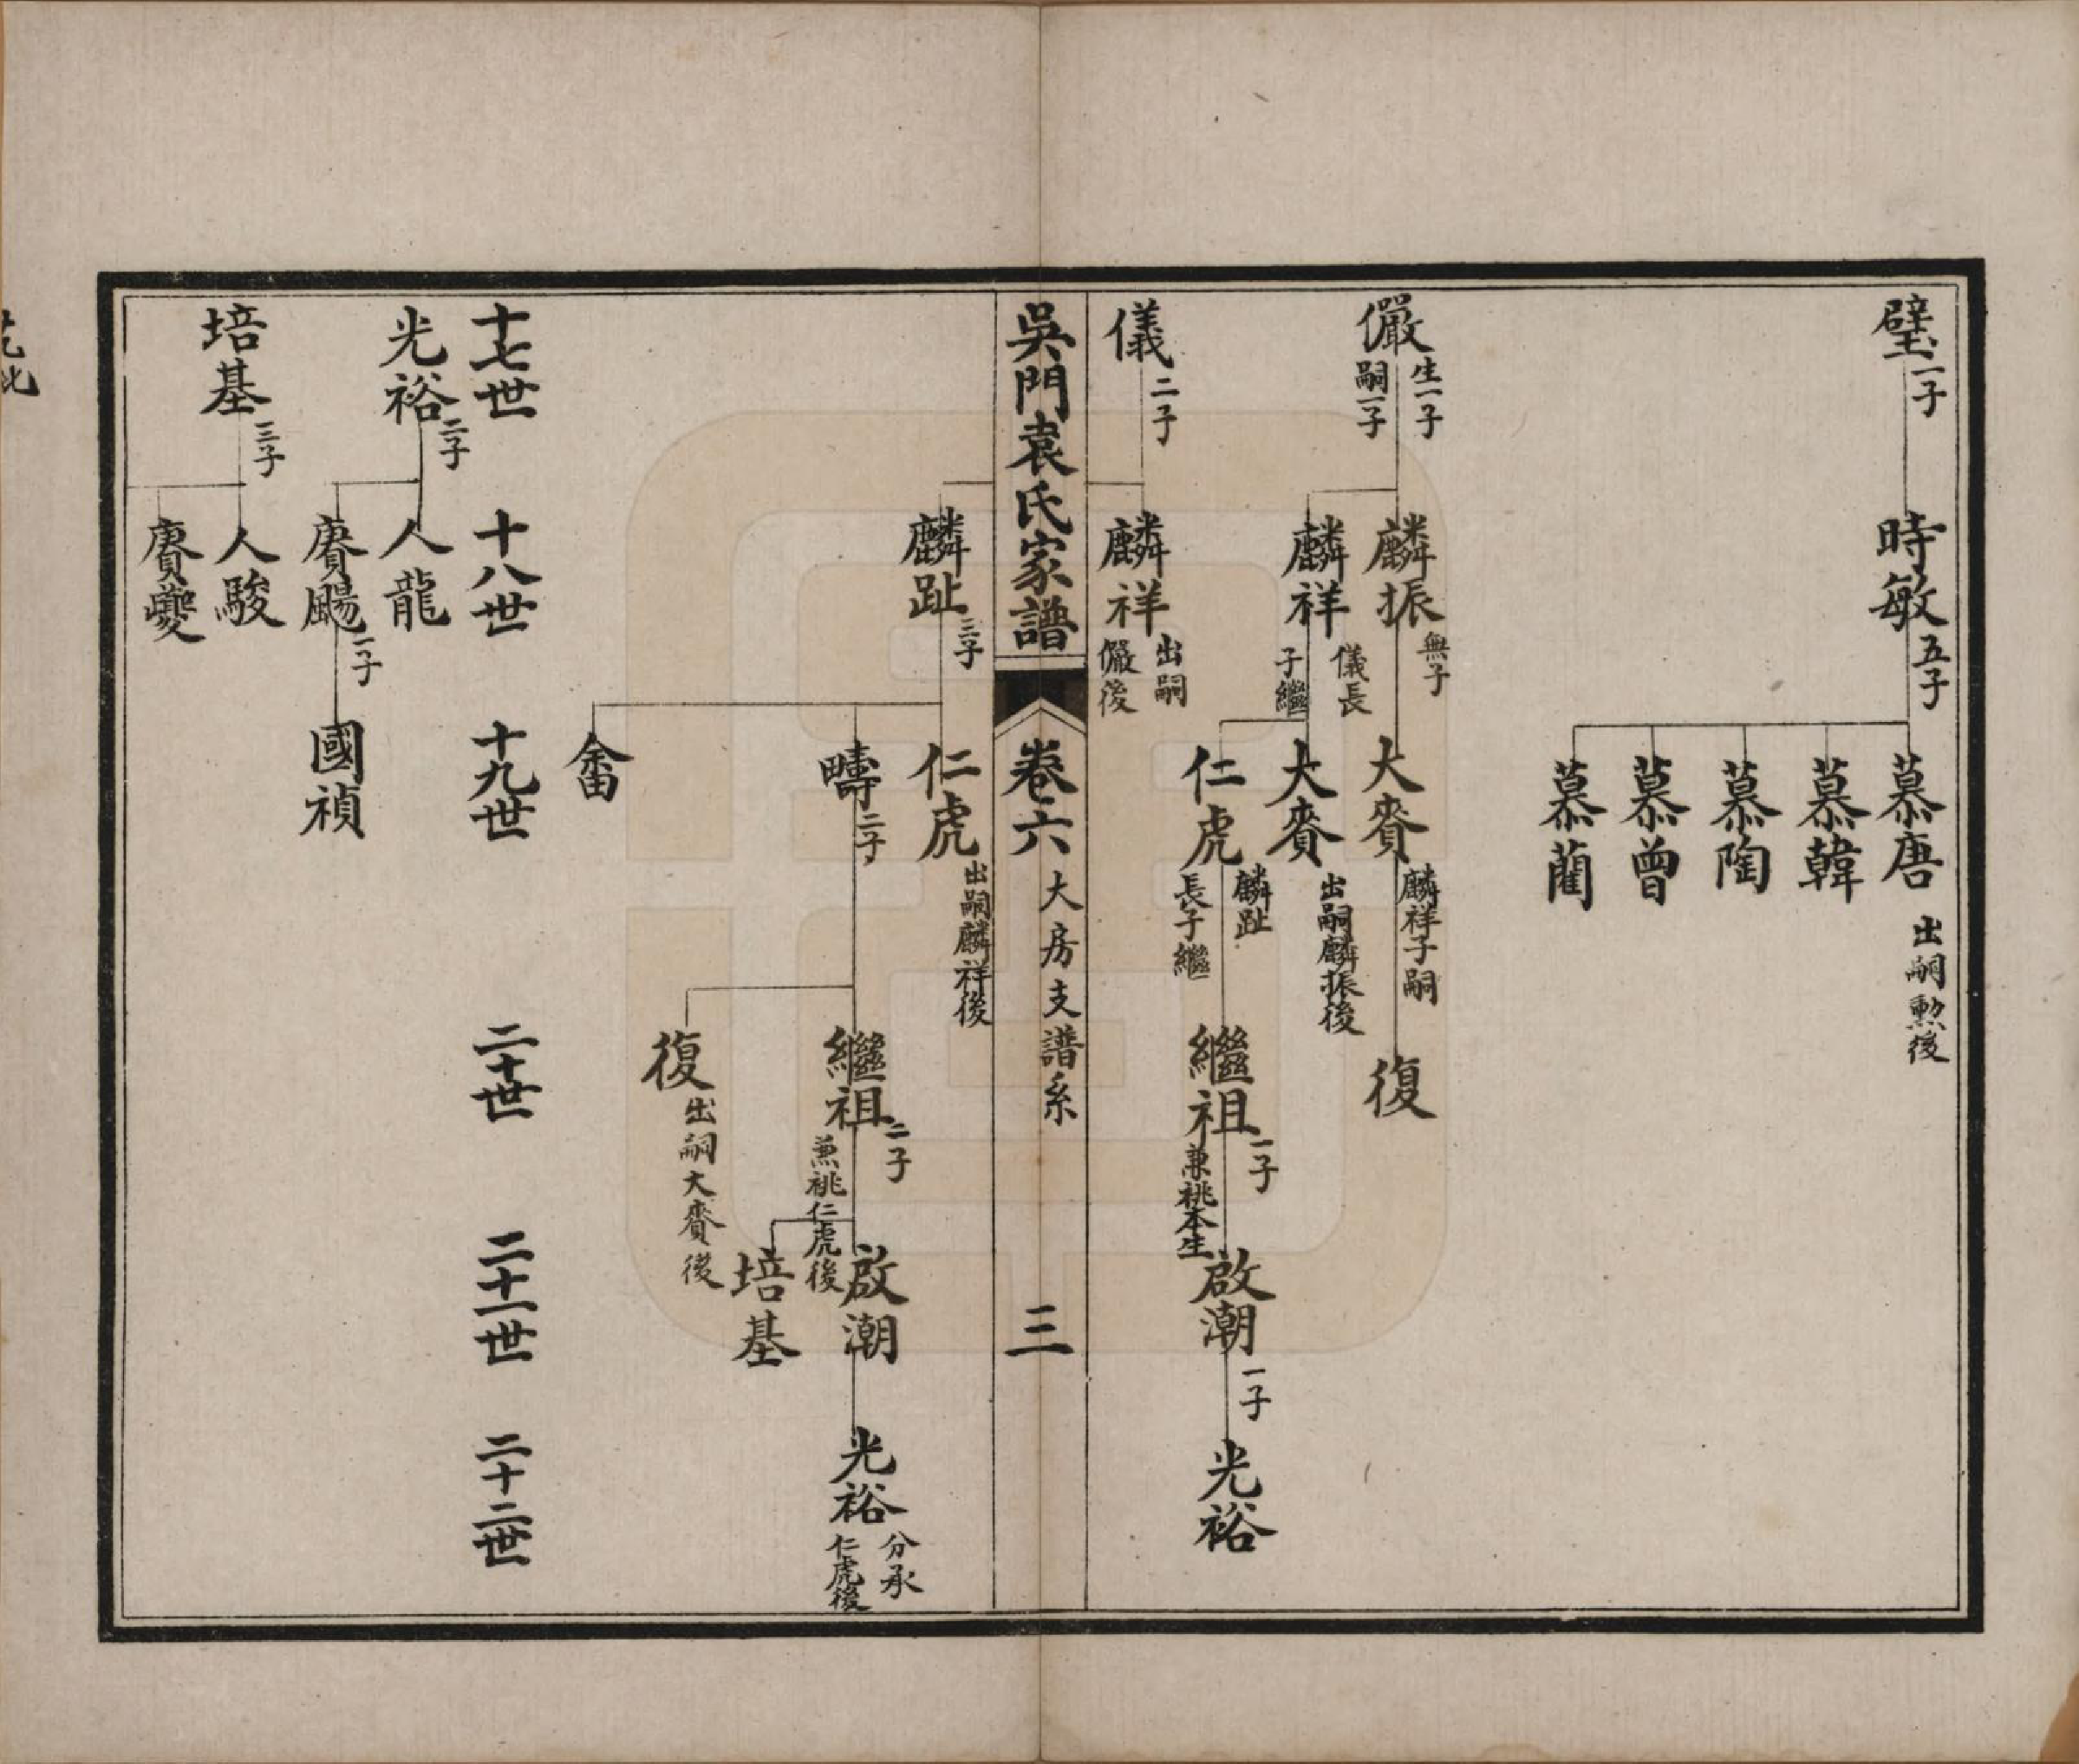 璧一子
時敏五子
慕唐出嗣勲後
慕韓
慕陶
慕曾
慕藺
儼生一子嗣一子
麟振無子
大賚麟祥子嗣
復
麟祥儀長子繼
大賚出嗣麟振後
仁虎麟趾長子繼
繼祖一子兼祧本生
啟潮一子
光裕
儀二子
麟祥出嗣儼後
吳門袁氏家譜
卷六
大房支譜系
三
麟趾三子
仁虎出嗣麟祥後
疇二子
繼祖二子兼祧仁虎後
啟潮
光裕分承仁虎後
培基
復出嗣大賚後
畬
十七世
十八世
十九世
二十世
二十一世
二十二世
光裕二子
人龍
賡颺一子
國禎
培基三子
人駿
賡夔